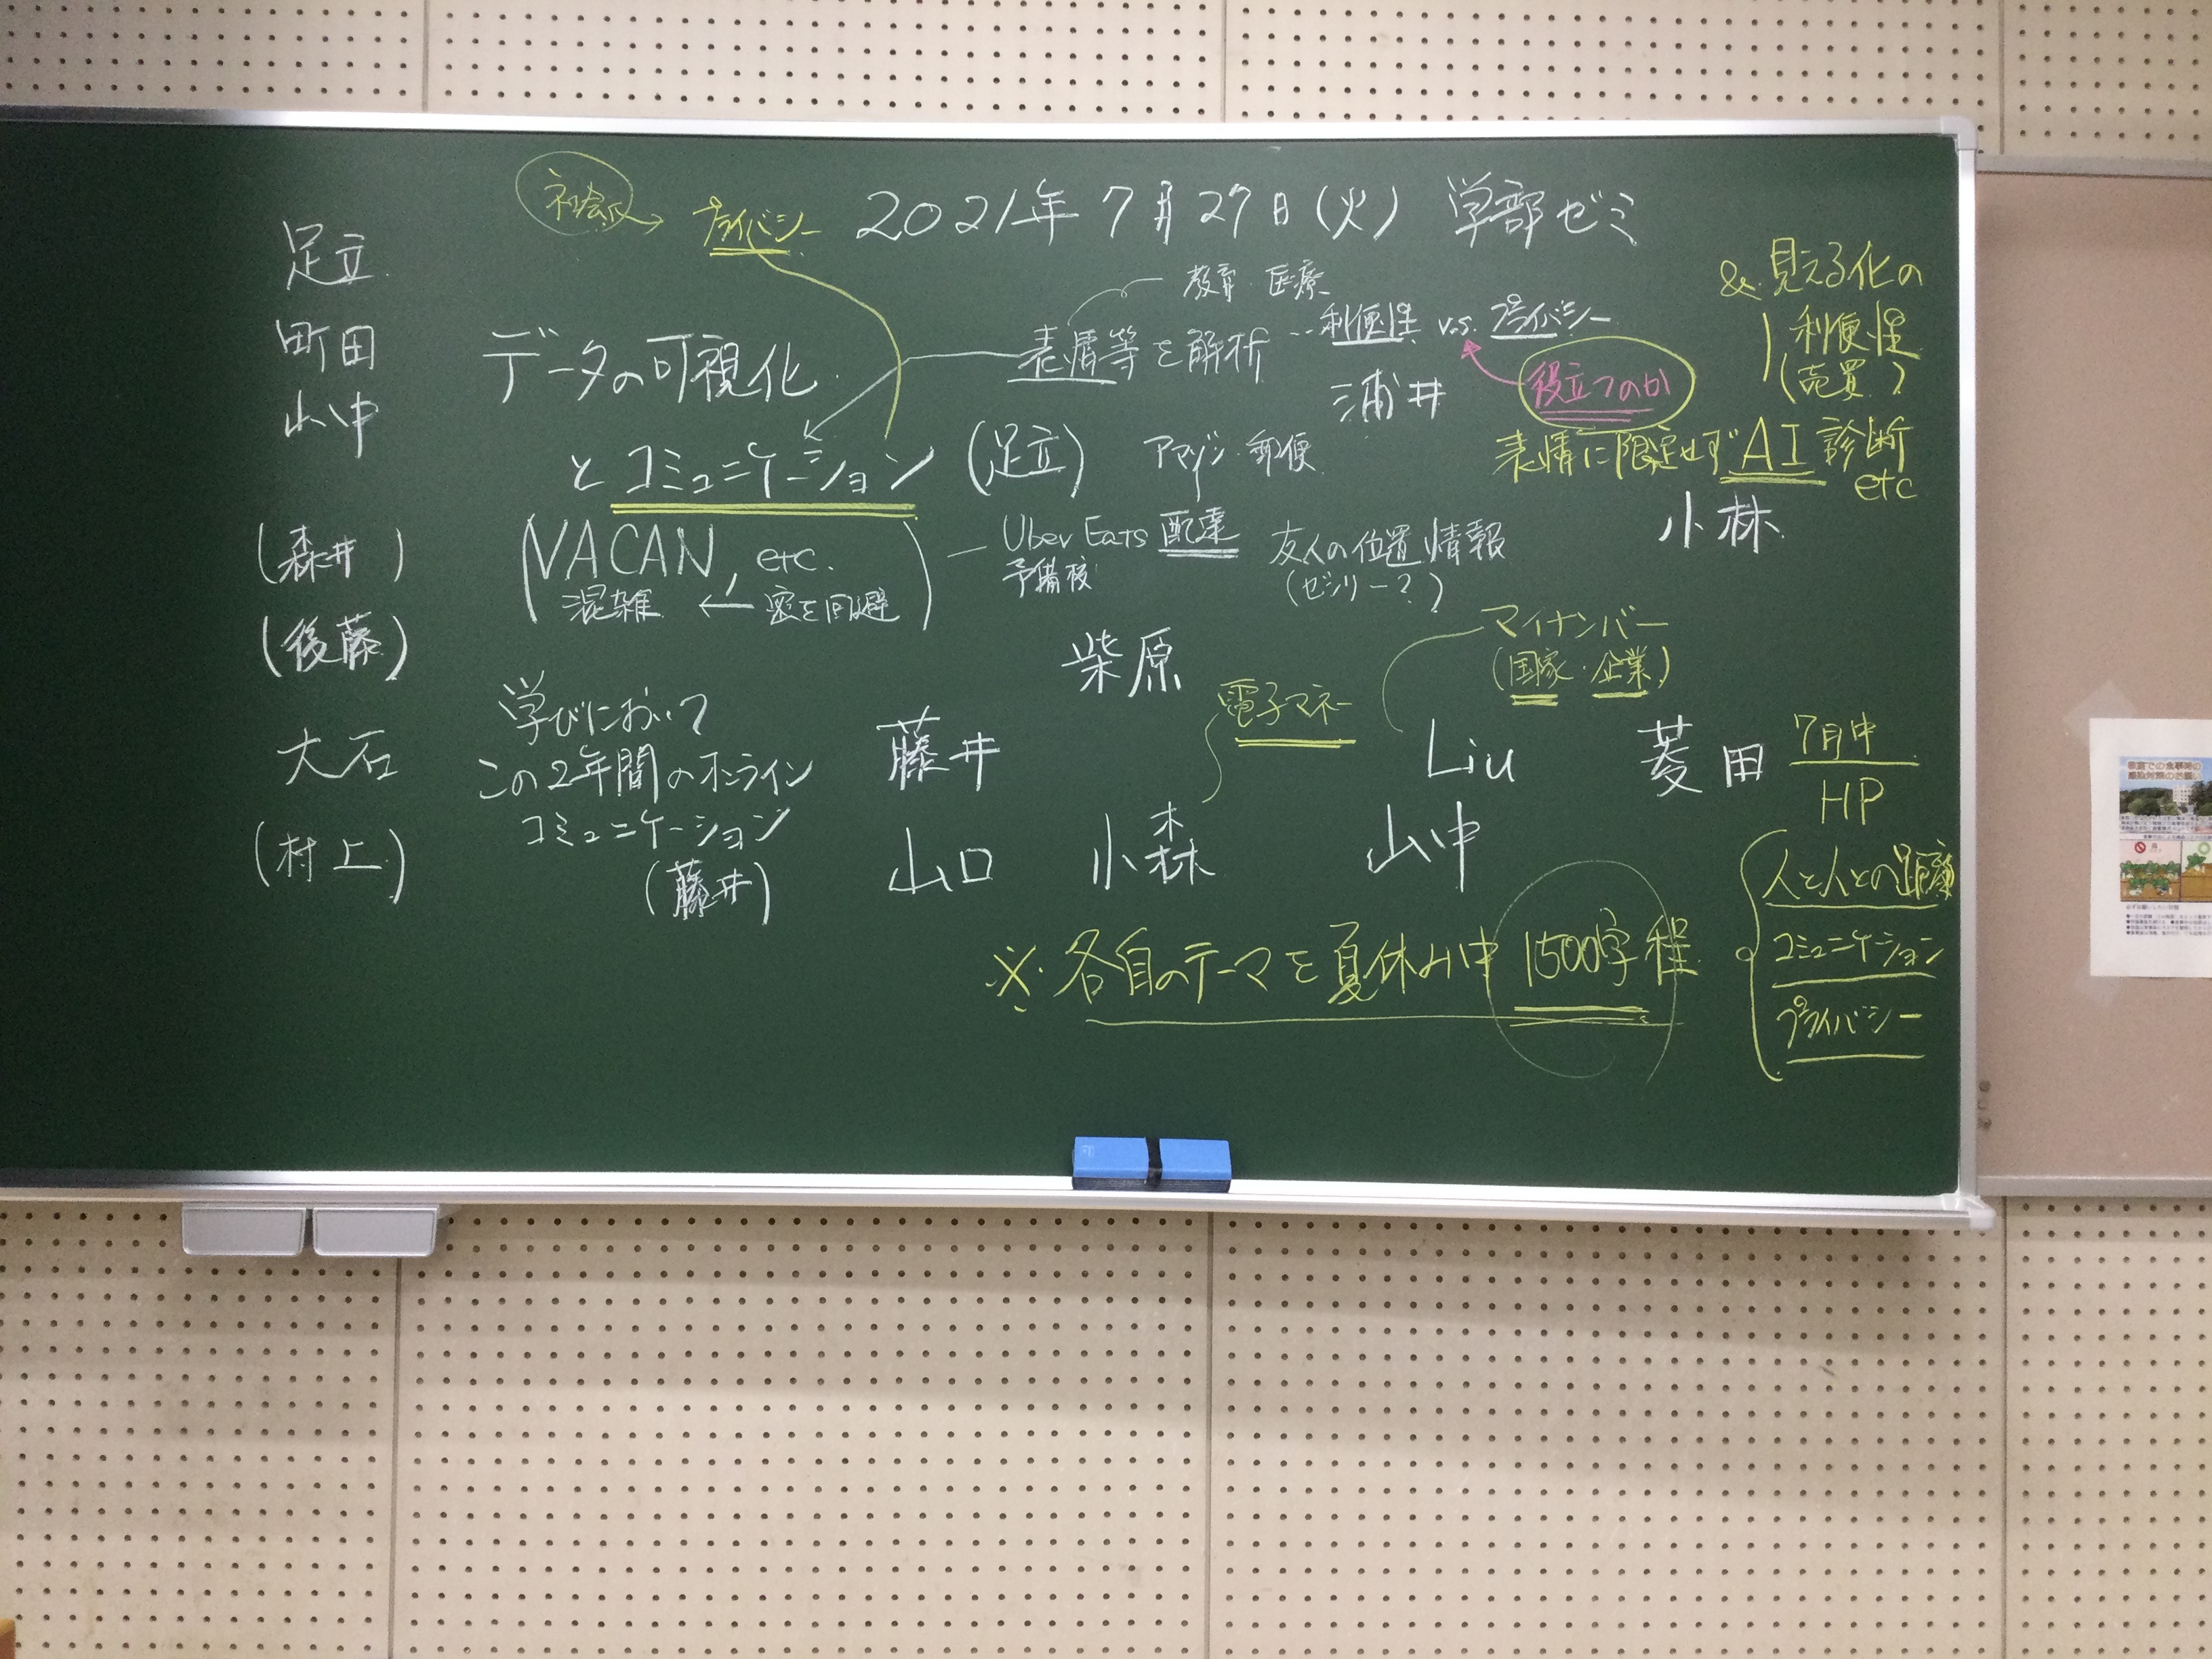 2021年7月27日(火) 学部ゼミ
足立
町田
山中
(森井)
(後藤)
大石
(村上)
プライバシー
データの可視化
とコミュニケーション (足立)
(VACAN, etc.
混雑 ← 密を回避)
教育・医療
表情等を解析 … 利便性 v.s. プライバシー
浦井
役立つのか
& 見える化の
利便性
(売買?)
表情に限定せず AI 診断
etc
小林
アマゾン・郵便
Uber Eats 配達
予備校
友人の位置情報
(ゼンリー?)
柴原
マイナンバー
(国家・企業)
電子マネー
学びにおいて
この2年間のオンライン
コミュニケーション
(藤井)
藤井
Liu
菱田
山口
小森
山中
7月中
HP
人と人との距離
コミュニケーション
プライバシー
※各自のテーマを夏休み中 1500字程